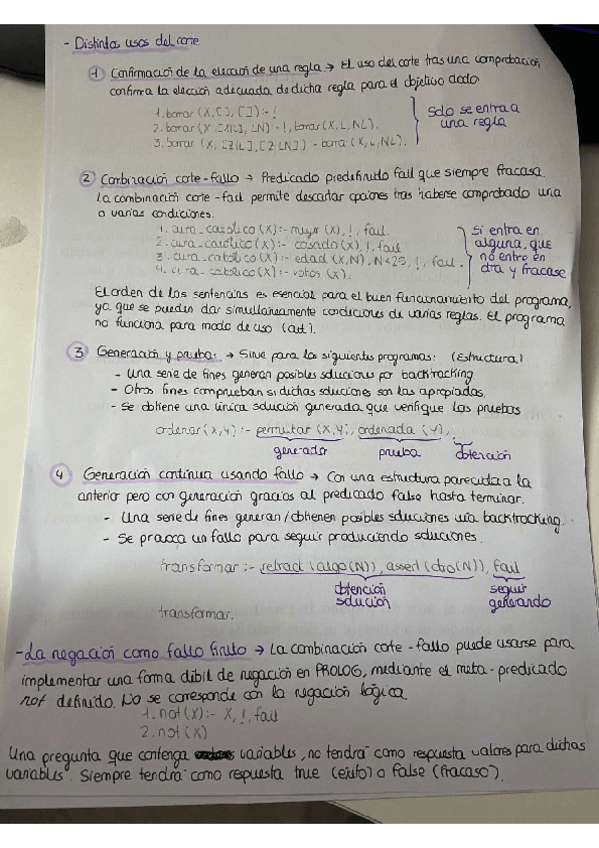 - Distintos usos del corte
1 Confirmación de la elección de una regla → El uso del corte tras una comprobación
confirma la elección adecuada de dicha regla para el objetivo dado
1. borrar (X,[],[]):-!
2. borrar (X,[X|L],LN):-!, borrar(X,L,NL).
3. borrar (X, [Z|L],[Z|LN]) - borra (X,L,NL).
Solo se entra a
una regla
2 Combinación corte-fallo → Predicado predefinido fail que siempre fracasa.
La combinación corte-fail permite descartar opciones tras haberse comprobado una
o varias condiciones.
1. cura_católico (X):- mujer (X), !, fail.
2. cura_católico (X):- casado (X), !, fail
3. cura_católico (X):- edad (X,N), N<25, !, fail.
4. cura_católico (X):- votos (X).
Si entra en
alguna, que
no entre en
otra y fracase
El orden de las sentencias es esencial para el buen funcionamiento del programa,
ya que se pueden dar simultáneamente condiciones de varias reglas. El programa
no funciona para modo de uso (out).
3 Generación y prueba: → Sirve para los siguientes programas: (Estructura)
- Una serie de fines generan posibles soluciones por backtracking
- Otros fines comprueban si dichas soluciones son las apropiadas.
- Se obtiene una única solución generada que verifique las pruebas
ordenar(x,y) :- permutar (X,Y), ordenada (Y),
generador prueba obtención
4 Generación continua usando fallo → Con una estructura parecida a la
anterior pero con generación gracias al predicado false hasta terminar.
- Una serie de fines generan/obtienen posibles soluciones vía backtracking.
- Se provoca un fallo para seguir produciendo soluciones.
transformar :- retract (algo(N)), assert (otro(N)), fail
obtención
solución
seguir
generando
transformar.
- La negación como fallo finito → La combinación corte-fallo puede usarse para
implementar una forma débil de negación en PROLOG, mediante el meta-predicado
not definido. No se corresponde con la negación lógica
1. not(X):- X, !, fail
2. not(X)
Una pregunta que contenga variables, no tendrá como respuesta valores para dichas
variables. Siempre tendrá como respuesta true (éxito) o false (fracaso).